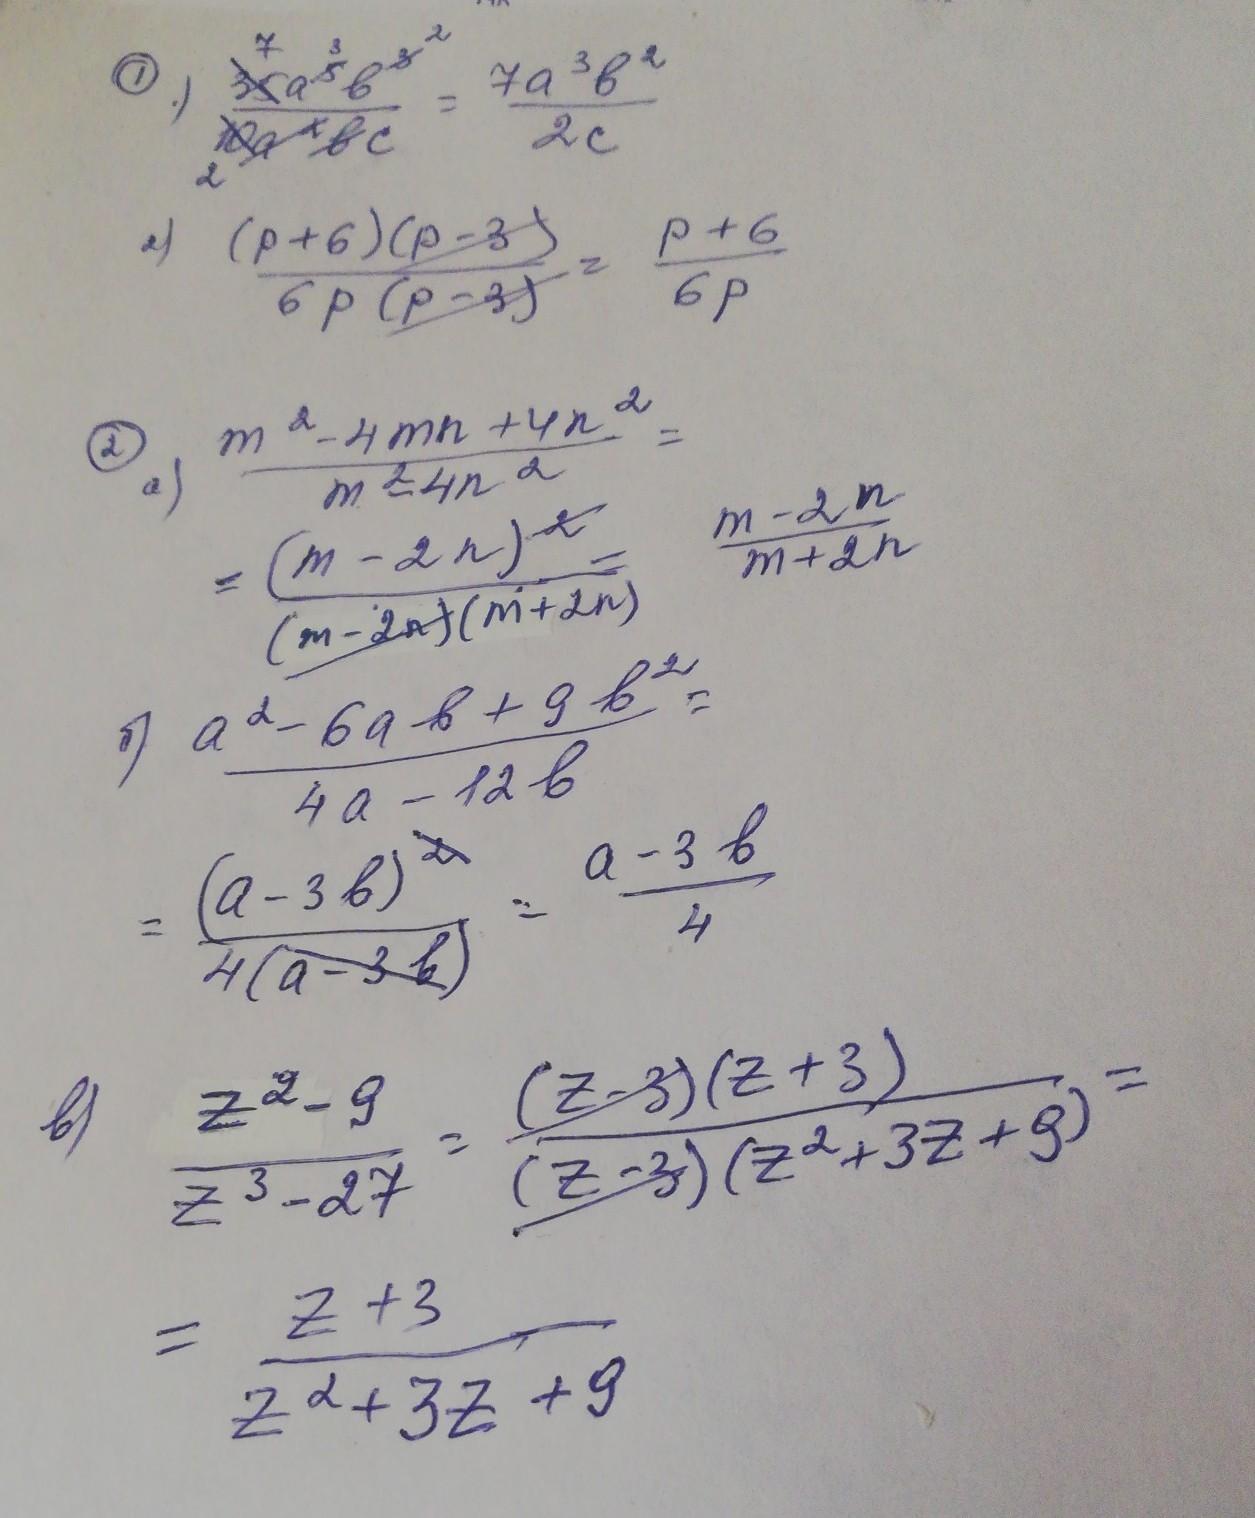 ① .) 35a⁵b³ / 10a²bc = 7a³b² / 2c
2) (p+6)(p-3) / 6p(p-3) = p+6 / 6p
② a) m² - 4mn + 4n² / m² - 4n² =
= (m - 2n)² / (m - 2n)(m + 2n) = m - 2n / m + 2n
б) a² - 6ab + 9b² / 4a - 12b =
= (a - 3b)² / 4(a - 3b) = a - 3b / 4
в) z² - 9 / z³ - 27 = (z - 3)(z + 3) / (z - 3)(z² + 3z + 9) =
= z + 3 / z² + 3z + 9